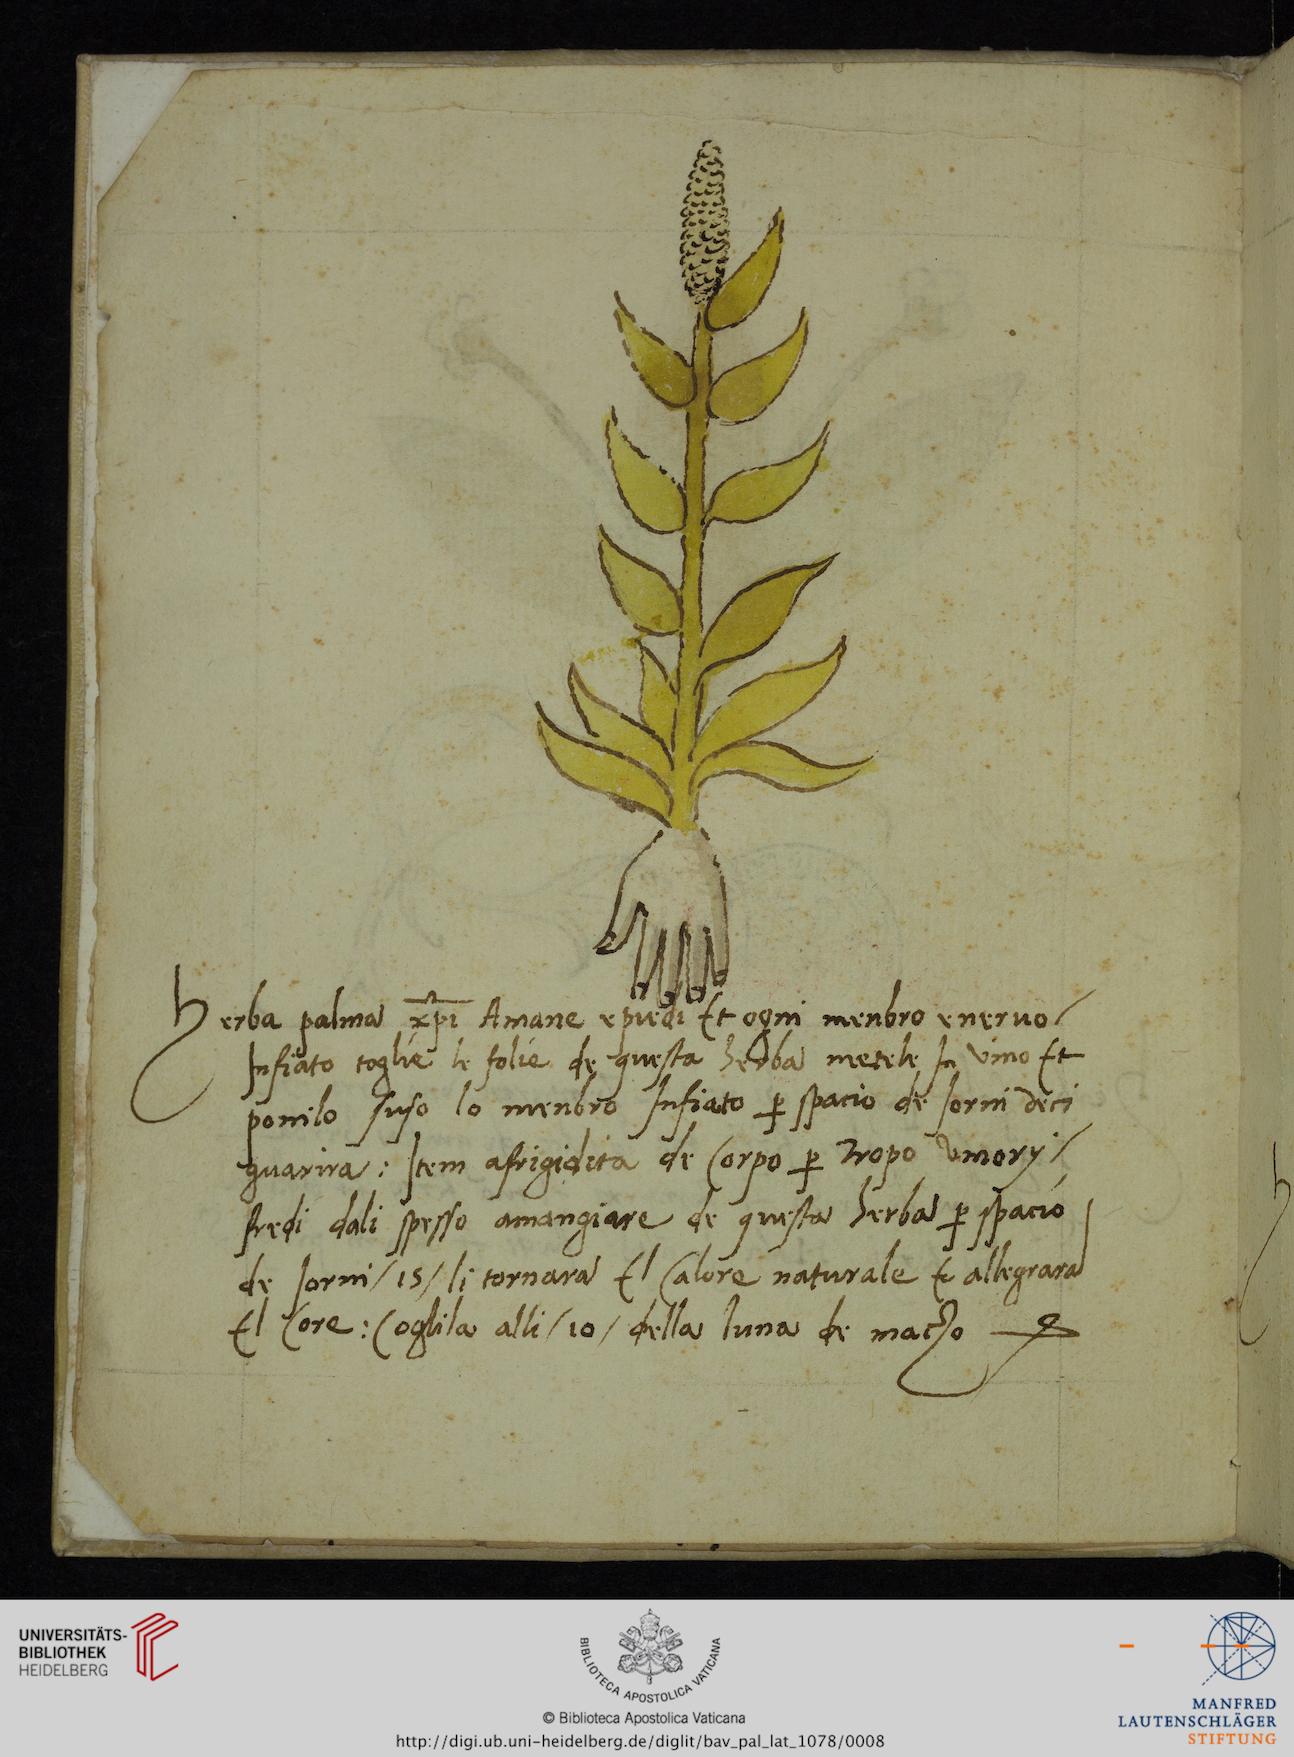 Herba palma xp̄i Amane epiedi Et ogni menbro eneruo/
Infiato toglie le folie de questa herba metele In vino Et
ponilo suso lo menbro Infiato p̱ spacio de Iorni deci
guarira: Item afrigidita de Corpo p̱ tropo vmory/
fredi dali spesso amangiare de questa herba p̱ spacio
de Iorni/15/li tornara El Calore naturale & allegrara
El Core: Coglila alli/10/della luna de marzo
UNIVERSITÄTS-
BIBLIOTHEK
HEIDELBERG
BIBLIOTECA APOSTOLICA VATICANA
© Biblioteca Apostolica Vaticana
http://digi.ub.uni-heidelberg.de/diglit/bav_pal_lat_1078/0008
MANFRED
LAUTENSCHLÄGER
STIFTUNG